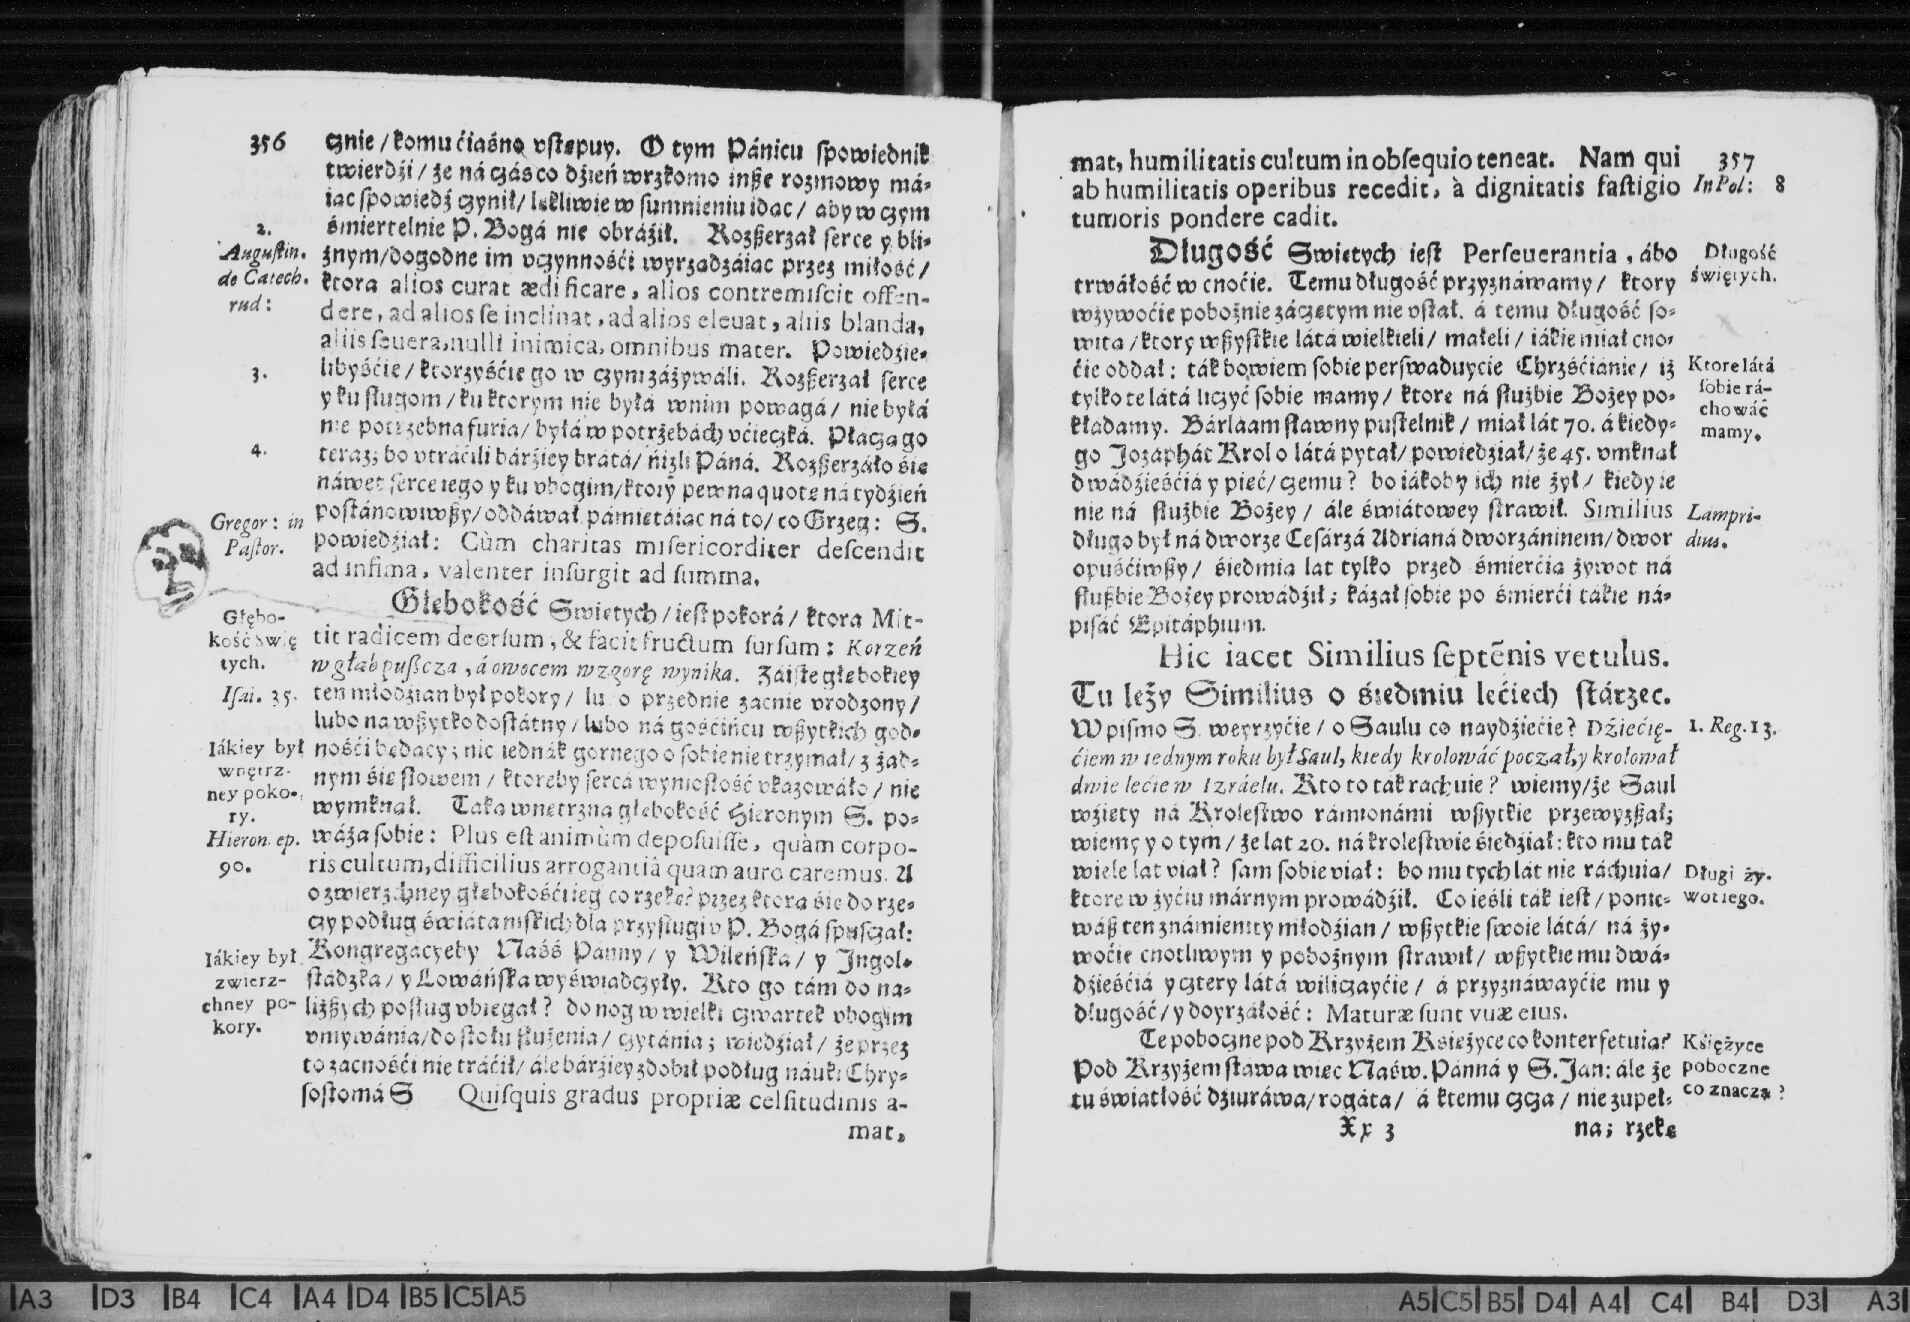 356
cznie / komu ćiásno vstępuy. O tym Pánicu spowiednik
twierdźi / że ná czás co dźień wrzkomo insze rozmowy má-
iąc spowiedź czynił / lękliwie w sumnieniu idąc / aby w czym
śmiertelnie P. Bogá nie obráźił. Rozszerzał serce y bli-
źnym / dogodne im vczynnośći wyrządzáiąc przez miłość /
ktora alios curat ædificare, alios contremiscit offen-
dere, ad alios se inclinat, ad alios eleuat, aliis blanda,
aliis seuera, nulli inimica, omnibus mater. Powiedźie-
libyśćie / ktorzyśćie go w czym záżywáli. Rozszerzał serce
y ku sługom / ku ktorym nie byłá w nim powagá / nie byłá
nie potrzebna furia / byłá w potrzebách vćieczká. Płaczą go
teraz; bo vtráćili bárźiey brátá / niżli Páná. Rozszerzáło się
náwet serce iego y ku vbogim / ktory pewną quotę ná tydźień
postánowiwszy / oddáwał pámiętáiąc ná to / co Grzeg: S.
powiedźiał: Cùm charitas misericorditer descendit
ad infima, valenter insurgit ad summa.
Głębokość Swiętych / iest pokorá / ktora Mit-
tit radicem deorsum, & facit fructum sursum: Korzeń
w głąb puszcza, á owocem wzgorę wynika. Záiste głębokiey
ten młodźian był pokory / lubo przednie zacnie vrodzony /
lubo na wszytko dostátny / lubo ná gośćińcu wszytkich god-
nośći będący; nic iednák gornego o sobie nie trzymał / z żad-
nym się słowem / ktoreby sercá wyniosłość vkazowáło / nie
wymknął. Taką wnętrzną głębokość Hieronym S. po-
waża sobie: Plus est animùm deposuisse, quàm corpo-
ris cultum, difficilius arrogantiâ quam auro caremus. A
o zwierzchney głębokośći ieg co rzekę? przez ktorą się do rze-
czy podług świátá niskich dla przysługi v P. Bogá spusczał:
Kongregacyeby Naśś Panny / y Wileńska / y Ingol-
stádzka / y Lowáńska wyświadczyły. Kto go tám do na-
liższych posług vbiegał? do nog w wielki czwartek vbogim
vmywánia / do stołu służenia / czytánia; wiedźiał / że przez
to zacnośći nie tráćił / ále bárźiey zdobił podług náuki Chry-
sostomá S Quisquis gradus propriæ celsitudinis a-
mat,
2.
Augustin.
de Catech.
rud:
3.
4.
Gregor: in
Pastor.
Głębo-
kość Swię
tych.
Isai. 35.
Iákiey był
wnętrz-
ney poko-
ry.
Hieron. ep.
90.
Iákiey był
zwierz-
chney po-
kory.
357
mat, humilitatis cultum in obsequio teneat. Nam qui
ab humilitatis operibus recedit, à dignitatis fastigio
tumoris pondere cadit.
Długość Swiętych iest Perseuerantia, ábo
trwáłość w cnoćie. Temu długość przyznáwamy / ktory
w żywoćie pobożnie záczętym nie vstał. á temu długość so-
wita / ktory wszystkie látá wielkieli / małeli / iákie miał cno-
ćie oddał: ták bowiem sobie perswaduycie Chrześćiánie / iż
tylko te látá liczyć sobie mamy / ktore ná służbie Bożey po-
kładamy. Bárláam sławny pustelnik / miał lát 70. á kiedy-
go Jozaphát Krol o látá pytał / powiedźiał / że 45. vmknął
dwádźieśćiá y pięć / czemu? bo iákoby ich nie żył / kiedy ie
nie ná służbie Bożey / ále świátowey strawił. Similius
długo był ná dworze Cesárzá Adrianá dworzáninem / dwor
opuśćiwszy / śiedmia lat tylko przed śmierćią żywot ná
służbie Bożey prowádźił; kázał sobie po śmierći tákie ná-
pisáć Epitáphium.
Hic iacet Similius septēnis vetulus.
Tu leży Similius o śiedmiu lećiech stárzec.
W pismo S. weyrzyćie / o Saulu co naydźiećie? Dźiećię-
ćiem w iednym roku był Saul, kiedy krolowáć począł, y krolował
dwie lećie w Izráelu. Kto to ták rachuie? wiemy / że Saul
wźięty ná Krolestwo rámionámi wszytkie przewyzszał;
wiemy y o tym / że lat 20. ná krolestwie śiedźiał: kto mu ták
wiele lat viął? sam sobie viął: bo mu tych lát nie ráchuią /
ktore w żyćiu márnym prowádźił. Co ieśli ták iest / ponie-
wáż ten známienity młodźian / wszytkie swoie látá / ná ży-
woćie cnotliwym y pobożnym strawił / wszytkie mu dwá-
dźieśćiá y cztery látá wiliczayćie / á przyznáwayćie mu y
długość / y doyrzáłość: Maturæ sunt vuæ eius.
Te poboczne pod Krzyżem Kśiężyce co konterfetuią?
Pod Krzyżem stawa więc Naśw. Pánná y S. Jan: ále że
tu światłość dźiuráwa / rogáta / á k temu czcza / nie zupeł-
Xx 3
na; rzekę
In Pol: 8
Długość
świętych.
Ktore látá
sobie rá-
chowáć
mamy.
Lampri-
dius.
1. Reg. 13.
Długi ży-
wot iego.
Kśiężyce
poboczne
co znaczą?
A3 D3 B4 C4 A4 D4 B5 C5 A5
A5 C5 B5 D4 A4 C4 B4 D3 A3